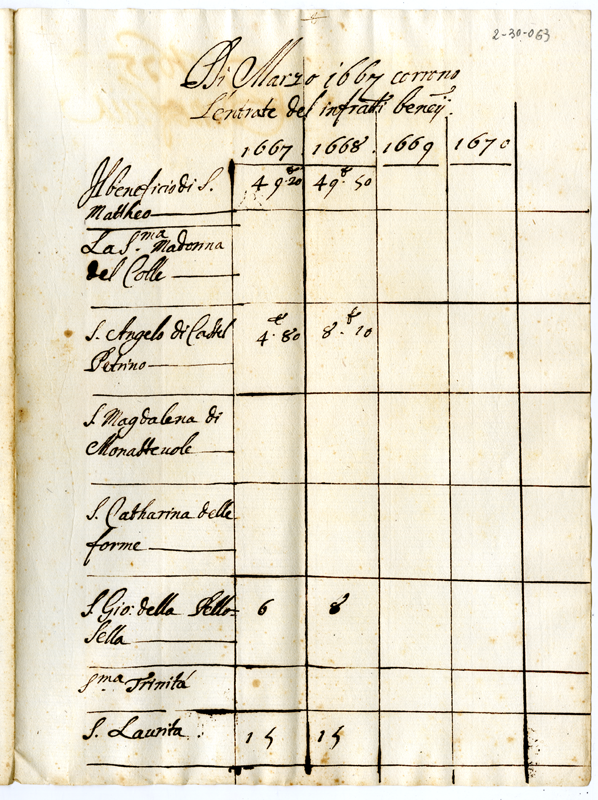 2-30-063
Di Marzo 1667 corrono
L'entrate del infratti beneij.
1667 1668. 1669 1670
Il beneficio di S. 49.20 49.50
Mattheo
La S.ma Madonna
del Colle
S. Angelo di Castel 4.80 8.10
Petrino
S. Magdalena di
Monasteuole
S. Catharina delle
forme
S. Gio: della Pello- 6 8
sella
S.ma Trinità
S. Laurita 15 15